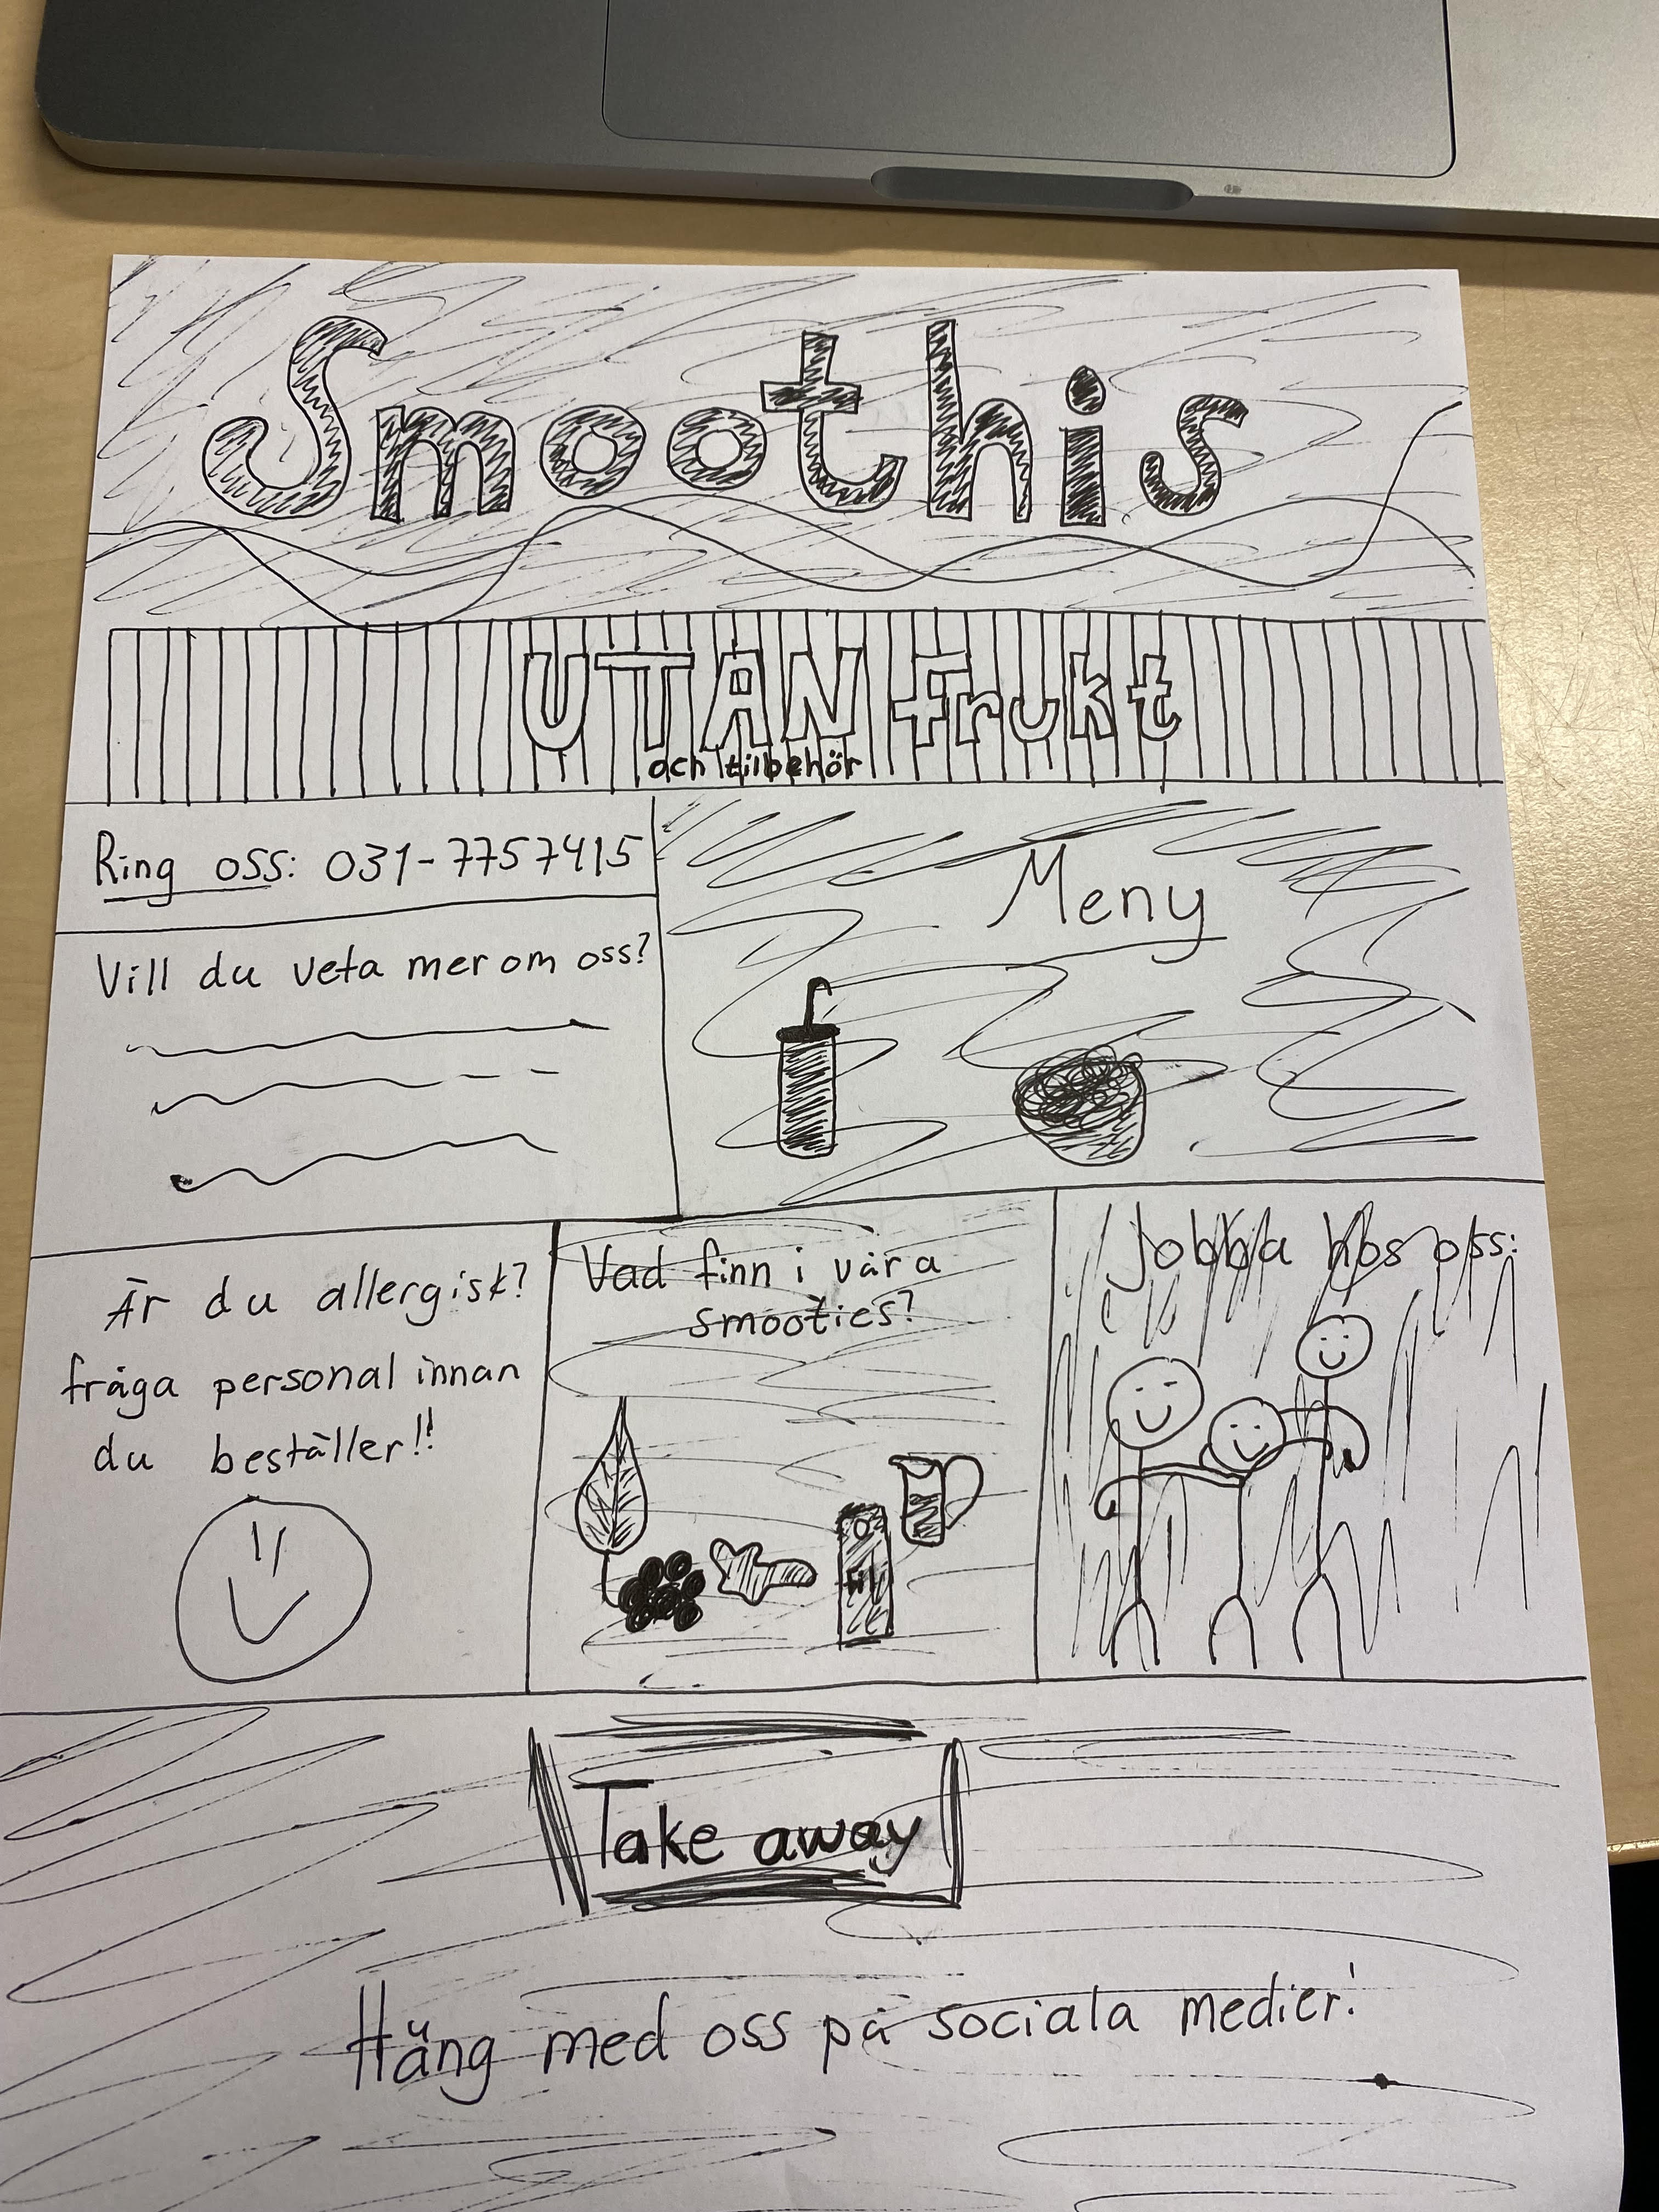 Smoothis
UTAN frukt
och tilbehör
Ring oss: 031-7757415
Vill du veta mer om oss?
Meny
Är du allergisk?
fråga personal innan
du beställer!!
Vad finn i våra
smooties?
Jobba hos oss:
Take away
Häng med oss på sociala medier!